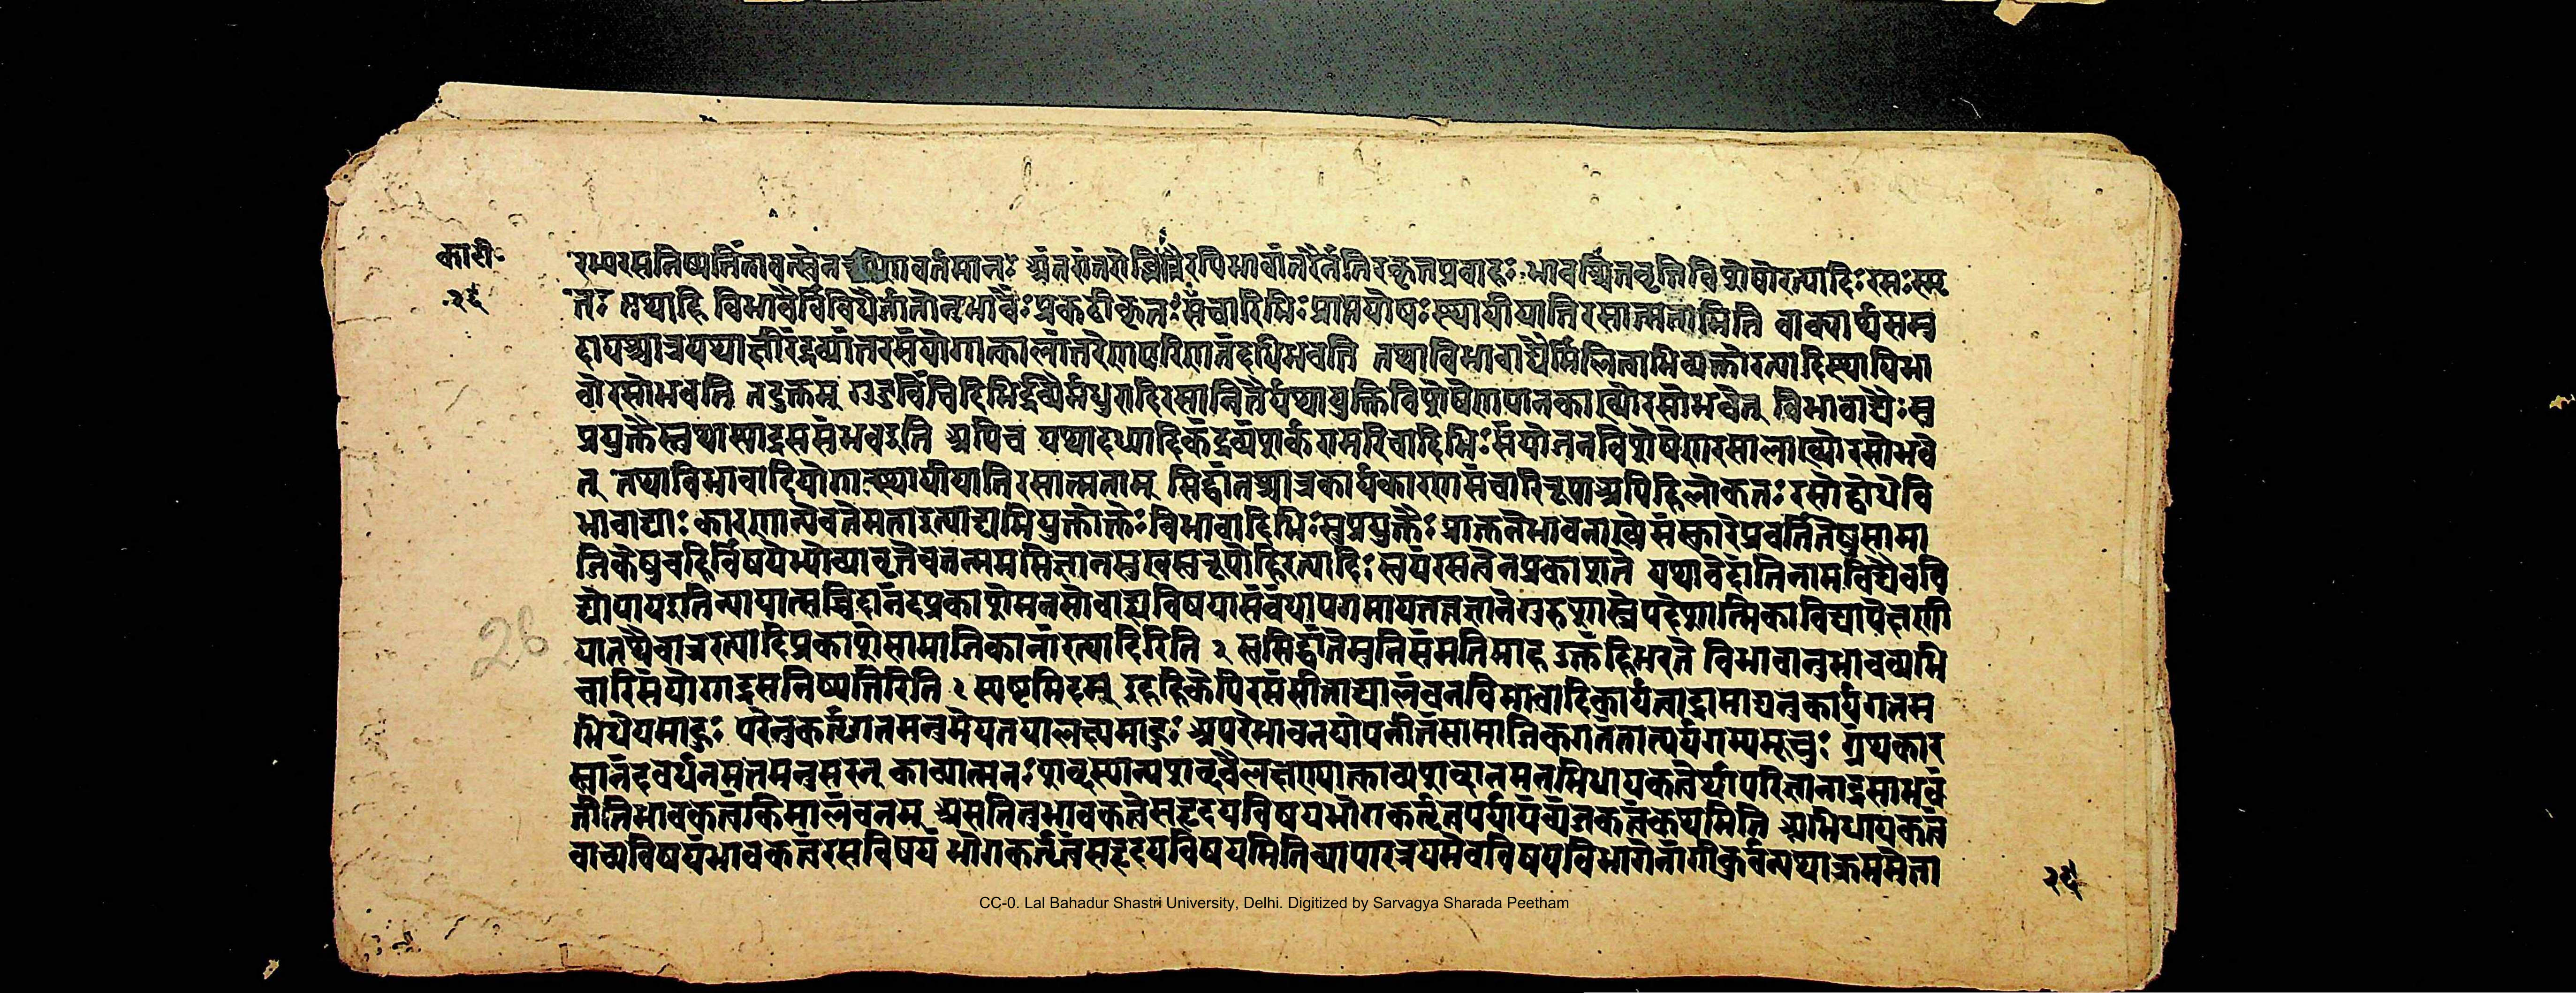 का॰टी॰
२६
रभ्परसनिष्पत्तिंतावत्स्वेन रूपेणवर्तमानः अंतरांतरोद्भिन्नैरपिभावांतरैर्नतिरस्कृतप्रवाहः भावश्चित्तवृत्तिविशेषोरत्यादिः रसः स्मृ
तः तथाहि विभावैर्विविधैर्जातोनुभावैः प्रकटीकृतः संचारिभिः प्राप्तपोषः स्थायीयातिरसात्मतामिति वाक्यार्थसमु
दायश्चात्रयथाक्षीरंद्रव्यांतरसंयोगात्कालांतरेणपरिणानंदधिभवति तथाविभावाद्यैर्मिलित्वाभिव्यक्तोरत्यादिस्थायिभा
वोरसोभवति तदुक्तम् गुडविंचिदिभिर्द्रव्यैर्मधुरादिरसान्वितैर्यथायुक्तिविशेषेणपानकाख्योरसोभवेत् विभावाद्यैः सु
प्रयुक्तैस्तथास्याद्रससंभवइति अपिच यथादध्यादिकंद्रव्यंशर्करामरिचादिभिः संयोजनविशेषेणरसालाख्योरसोभवे
त् तथाविभावादियोगात्स्थायीयातिरसात्मताम् सिद्धांतश्चात्रकार्यकारणसंचारिरूपाअपिहिलोकतः रसोद्बोधेवि
भावाद्याः कारणान्येवतेमताइत्याद्यभियुक्तोक्तेः विभावादिभिः सुप्रयुक्तैः प्राक्तनेभावनाख्येसंस्कारेप्रवर्तितेषुसामा
जिकेषुबहिर्विषयेभ्योव्यावृत्तेचतन्मनसिज्ञानसुखस्वरूपोहिरत्यादिः स्वयंरसत्वेनप्रकाशते यथावेदांतिनामविद्यैववि
द्योपायइतिन्यायात्सच्चिदानंदप्रकाशेमनसोबाह्यविषयासंबंधोपगमायतत्वज्ञानेगुरुशास्त्रोपदेशात्मिकाविद्यापेक्षणी
यातथैवात्ररत्यादिप्रकाशेसामाजिकानांरत्यादिरिति २ स्वसिद्धांतेमुनिसंमतिमाह उक्तंहिभरते विभावानुभावव्यभि
चारिसंयोगाद्रसनिष्पत्तिरिति २ स्पष्टमिदम् इहहिकेपिरसंसीताद्यालंबनविभावादिकार्यत्वाद्रामाद्यनुकार्यगतम
भिधेयमाहुः परेनुकर्तृगतमनुमेयतयालक्ष्यमाहुः अपरेभावनयोपनीतंसामाजिकगतंतात्पर्यगम्यमूचुः ग्रंथकार
स्त्वानंदवर्धनमतमनुसरन् काव्यात्मनः शब्दस्यान्यशब्दवैलक्षण्याक्ताव्यशब्दानमनभिधायकत्वेर्थापरिज्ञानाद्रसाभवं
तीतिभावकत्वंकिमालंबनम् असतितुभावकत्वेसहृदयविषयभोगकर्तृत्वपर्यायंव्यंजकत्वंकथमिति अभिधायकत्वं
वाच्यविषयंभावकत्वंरसविषयं भोगकर्तृत्वंसहृदयविषयमितिव्यापारत्रयमेवविषयविभागेनांगीकुर्वन्यथाक्रममेता
२६
26
CC-0. Lal Bahadur Shastri University, Delhi. Digitized by Sarvagya Sharada Peetham